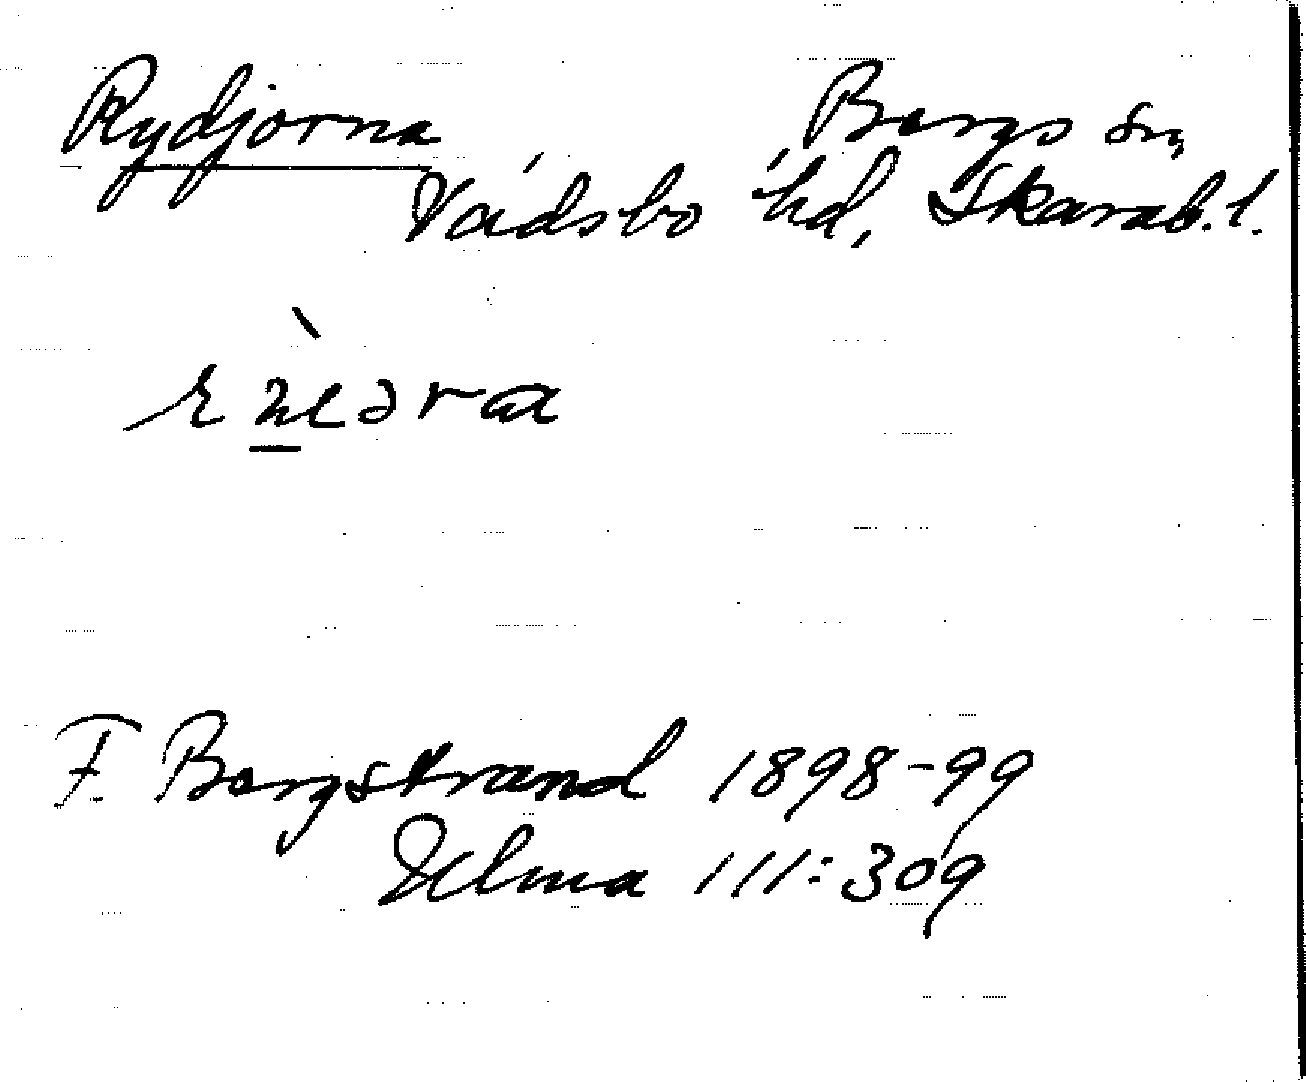 Rydjorna Bergs sn,
Vadsbo hd, Skarab. l.
F. Bergstrand 1898-99
Ulma 111:309